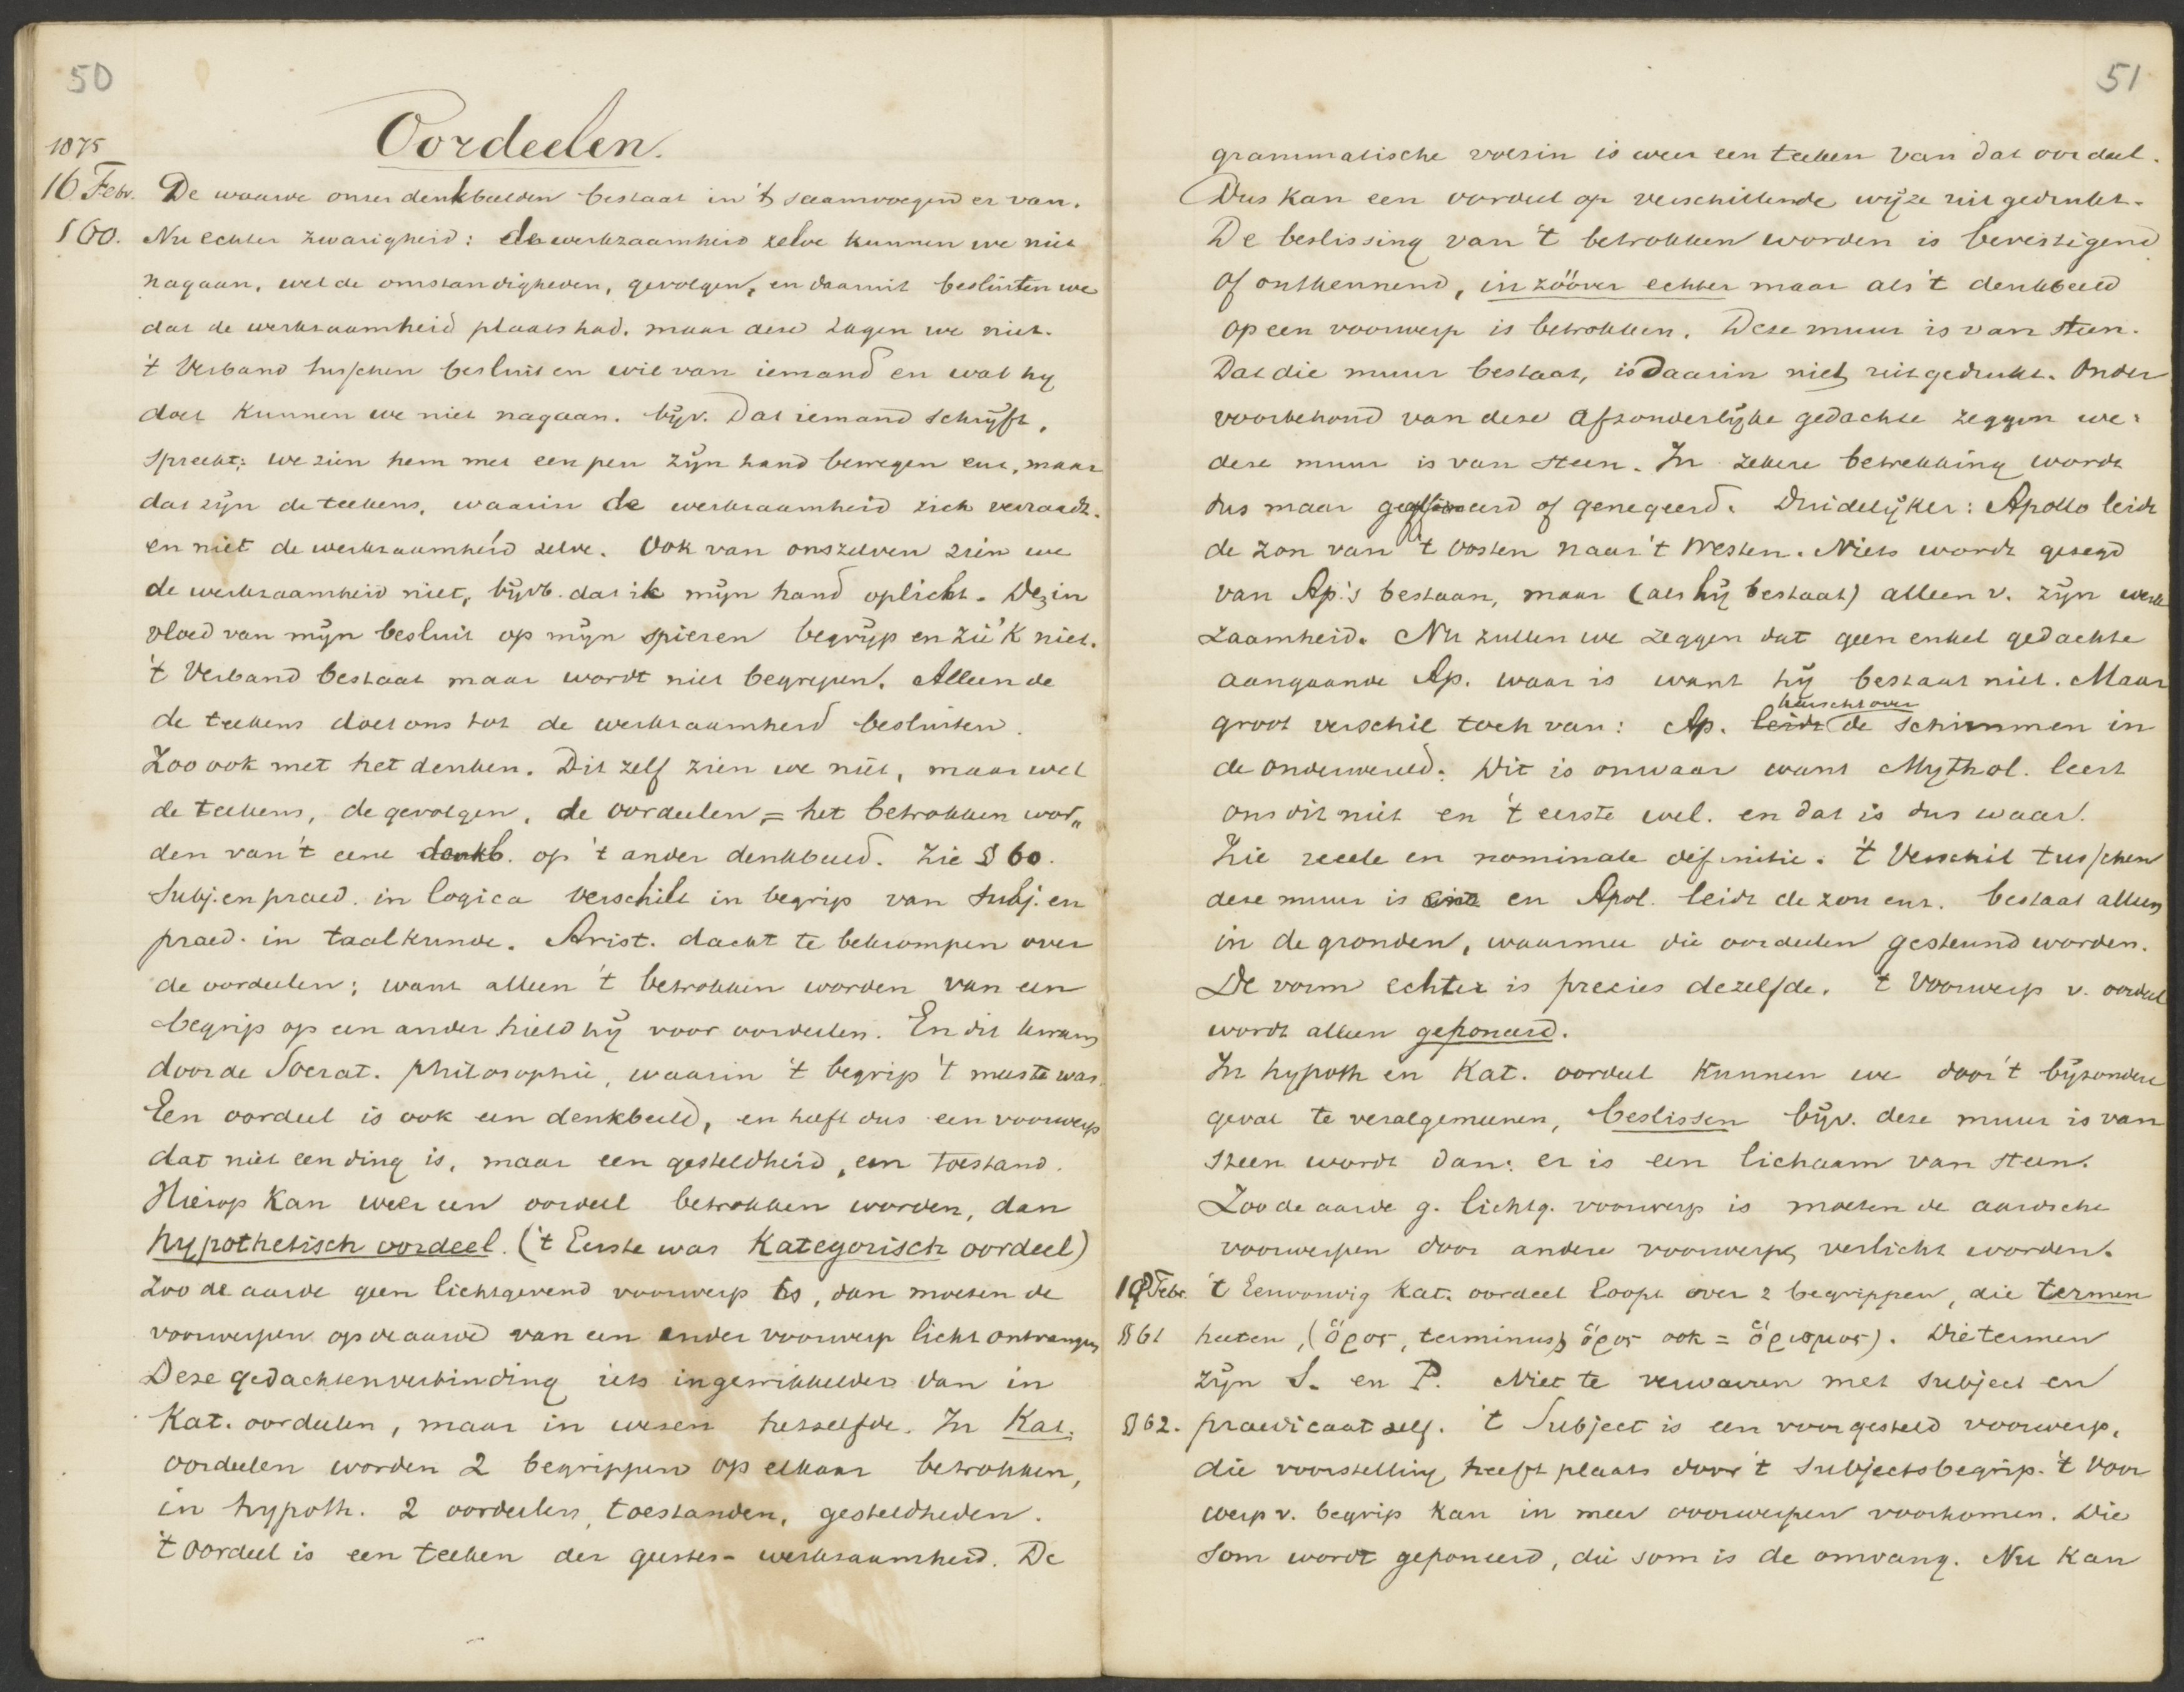 50
1875
Oordeelen.
16 Febr. De waarde onzer denkbeelden bestaat in 't saamvoegend er van.
§60. Nu echter zwarigheid: de werkzaamheid zelve kunnen we niet
nagaan, wel de omstandigheden, gevolgen, en daaruit besluiten we
dat de werkzaamheid plaats had, maar deze zagen we niet.
't Verband tusschen besluit en wil van iemand en wat hij
doet kunnen we niet nagaan. bijv. Dat iemand schrijft,
spreekt; we zien hem met een pen zijn hand bewegen enz, maar
dat zijn de teekens, waarin de werkzaamheid zich verraadt.
en niet de werkzaamheid zelve. Ook van onszelven zien we
de werkzaamheid niet, bijvb. dat ik mijn hand oplicht. De in
vloed van mijn besluit op mijn spieren begrijp en zie 'k niet.
't Verband bestaat maar wordt niet begrepen. Alleen de
de teekens doet ons tot de werkzaamheid besluiten.
Zoo ook met het denken. Dit zelf zien we niet, maar wel
de teekens, de gevolgen, de oordeelen, = het betrokken wor„
den van 't eene denkb. op 't ander denkbeeld. Zie § 60.
Subj. en praed. in logica verschilt in begrip van Subj. en
praed. in taalkunde. Arist. dacht te bekrompen over
de oordeelen; want alleen 't betrokken worden van een
begrip op een ander hield hij voor oordeelen. En dit kwam
door de Socrat. philosophie, waarin 't begrip 't meeste was.
Een oordeel is ook een denkbeeld, en heeft dus een voorwerp
dat niet een ding is, maar een gesteldheid, een toestand.
Hierop kan weer een oordeel betrokken worden, dan
hypothetisch oordeel. ('t Eerste was Kategorisch oordeel)
Zoo de aarde geen lichtgevend voorwerp is, dan moeten de
voorwerpen op de aarde van een ander voorwerp licht ontvangen
Deze gedachtenverbinding iets ingewikkelder dan in
Kat. oordeelen, maar in wezen hetzelfde. In Kat.
oordeelen worden 2 begrippen op elkaar betrokken,
in hypoth. 2 oordeelen, toestanden, gesteldheden.
't Oordeel is een teeken der geestes- werkzaamheid. De
51
grammatische volzin is weer een teeken van dat oordeel.
Dus kan een oordeel op verschillende wijze uitgedrukt.
De beslissing van 't betrokken worden is bevestigend
of ontkennend, in zoover echter maar als 't denkbeeld
op een voorwerp is betrokken. Deze muur is van steen.
Dat die muur bestaat, is daarin niet uitgedrukt. Onder
voorbehoud van deze afzonderlijke gedachte zeggen we:
deze muur is van steen. In zekere betrekking wordt
dus maar geaffirmeerd of genegeerd. Duidelijker: Apollo leidt
de zon van 't Oosten naar 't Westen. Niets wordt gezegd
van Ap.'s bestaan, maar (als hij bestaat) alleen v. zijn werk
zaamheid. Nu zullen we zeggen dat geen enkel gedachte
aangaande Ap. waar is want hij bestaat niet. Maar
heerscht over
groot verschil toch van: Ap. leidt de schimmen in
de onderwereld. Dit is onwaar want Mythol. leert
ons dit niet en 't eerste wel. en dat is dus waar.
Zie reeele en nominale definitie. 't Verschil tusschen
deze muur is enz en Apol. leidt de zon enz. bestaat alleen
in de gronden, waarmee die oordeelen gesteund worden.
De vorm echter is precies dezelfde. 't Voorwerp v. oordeel
wordt alleen geponeerd.
In hypoth en Kat. oordeel kunnen we door 't bijzondere
geval te veralgemeenen, beslissen bijv. deze muur is van
steen wordt dan: er is een lichaam van steen.
Zoo de aarde g. lichtg. voorwerp is moeten de aardsche
voorwerpen door andere voorwerpen verlicht worden.
19 Febr. 't Eenvoudig Kat. oordeel loopt over 2 begrippen, die termen
§61 heeten, (ὅρος, terminus; ὅρος ook = ὁρισμος). Die termen
zijn S. en P. Niet te verwarren met subject en
§62. praedicaat zelf. 't Subject is een voorgesteld voorwerp,
die voorstelling heeft plaats door 't subjectsbegrip. 't Voor
werp v. begrip kan in meer voorwerpen voorkomen. Die
som wordt geponeerd, die som is de omvang. Nu kan